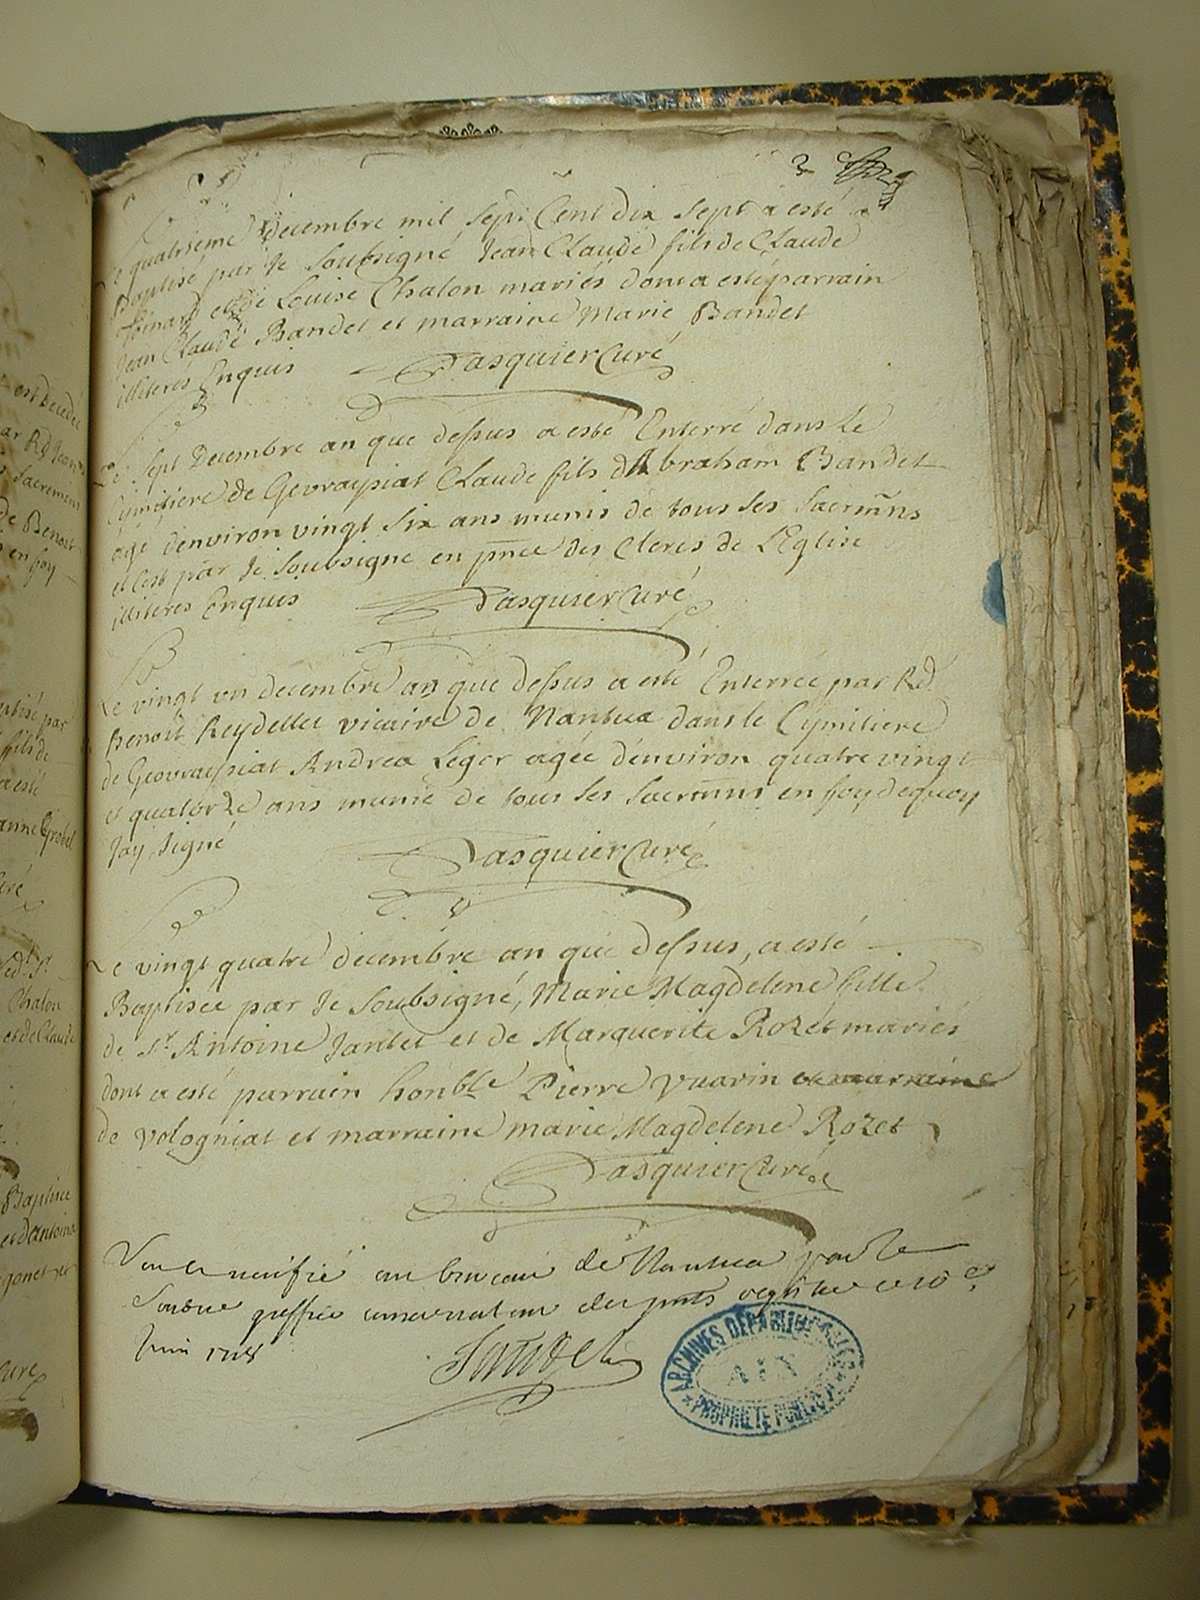 3
Le quatrieme decembre mil sept Cent dix sept a esté
Baptisé par Je Soubsigné Jean Claude fils de Claude
et de Louise Chalon mariés dont a esté parrain
Jean Claude Bandet et marraine Marie Bandet
illiterés Enquis Pasquier Curé
Le sept Decembre an que dessus a esté Enterré dans le
Cymitiere de Gevraysiat Claude fils d'Abraham Bandet
agé denviron vingt six ans munis de tous ses sacrmns
et cest par Je Soubsigné en pnce des Clercs de L'Eglise
illiterés Enquis Pasquier Curé
Le vingt un decembre an que dessus a esté Enterrée par Rd
Benoit Reydellet vicaire de Nantua dans le Cymitiere
de Geovraysiat Andrea Leger agée denviron quatre vingt
et quatorze ans munie de tous ses sacrmns en foy dequoy
Jay signé Pasquier Curé
Le vingt quatre decembre an que dessus, a esté
Baptisée par Je Soubsigné, Marie Magdelene fille
de Sr Antoine Jantet et de Marguerite Rozet mariés
dont a esté parrain honble Pierre Vuarin et marraine
de Vologniat et marraine marie Magdelene Rozet
Pasquier Curé
Veu et verifié au bureau de Nantua par le
greffier conservateur des registre ce 10e
Juin 1718
ARCHIVES DÉPARTEMENTALES
AIN
PROPRIÉTÉ PUBLIQUE
est Decedee
par Rd Jean
Sacremens
de Benoit
en foy
baptisé par
fils de
a esté
anne Grobel
Curé
Chalon
et de Claude
Baptisée
et d'antoine
Curé